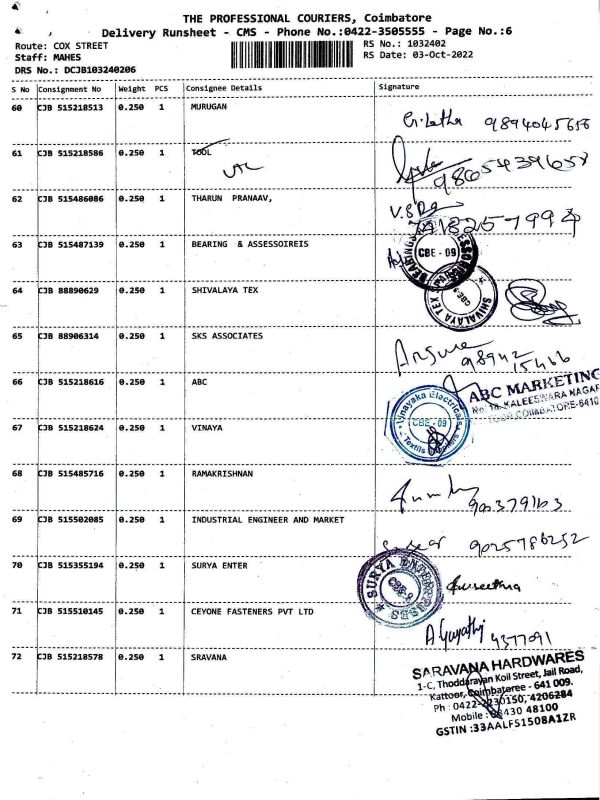 THE PROFESSIONAL COURIERS, Coimbatore
Delivery Runsheet - CMS - Phone No.:0422-3505555 - Page No.:6
Route: COX STREET
RS No.: 1032402
Staff: MAHES
RS Date: 03-Oct-2022
DRS No.: DCJB103240206
S No Consignment No Weight PCS Consignee Details Signature
60 CJB 515218513 0.250 1 MURUGAN
9894045616
61 CJB 515218586 0.250 1 TOOL
9865439658
62 CJB 515486086 0.250 1 THARUN PRANAAV,
63 CJB 515487139 0.250 1 BEARING & ASSESSOIREIS
CBE - 09
64 CJB 88890629 0.250 1 SHIVALAYA TEX
SHIVALAYA TEX CBE-9
65 CJB 88906314 0.250 1 SKS ASSOCIATES
98942 15466
66 CJB 515218616 0.250 1 ABC
ABC MARKETING
KALEESWARA NAGAR
COIMBATORE-6410
67 CJB 515218624 0.250 1 VINAYA
Vinayaka Electricals
CBE - 09
68 CJB 515485716 0.250 1 RAMAKRISHNAN
69 CJB 515502085 0.250 1 INDUSTRIAL ENGINEER AND MARKET
9025786252
70 CJB 515355194 0.250 1 SURYA ENTER
SURYA ENTERPRISES CBE-9
71 CJB 515510145 0.250 1 CEYONE FASTENERS PVT LTD
A Gayathi 4377091
72 CJB 515218578 0.250 1 SRAVANA
SARAVANA HARDWARES
1-C, Thoddarayan Koil Street, Jail Road,
Kattoor, Coimbatoree - 641 009.
Ph : 0422-2230150, 4206284
Mobile : 98430 48100
GSTIN :33AALFS1508A1ZR